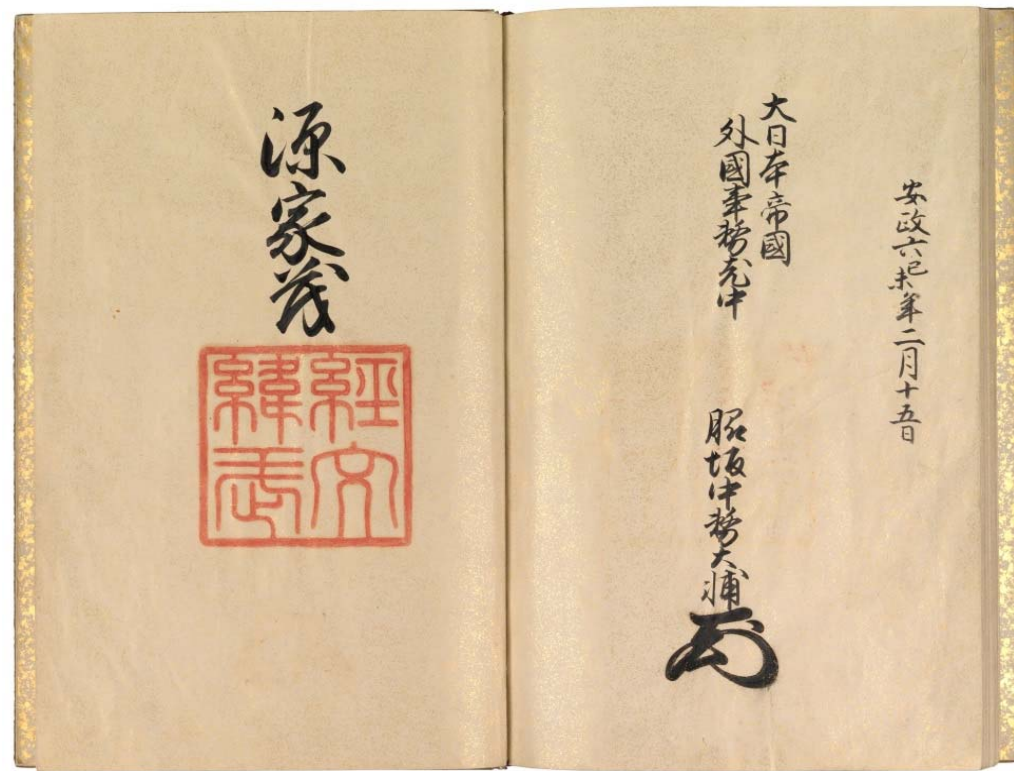 安政六己未年二月十五日
大日本帝國
外國事務老中
脇坂中務大輔
源家茂
經文
緯武